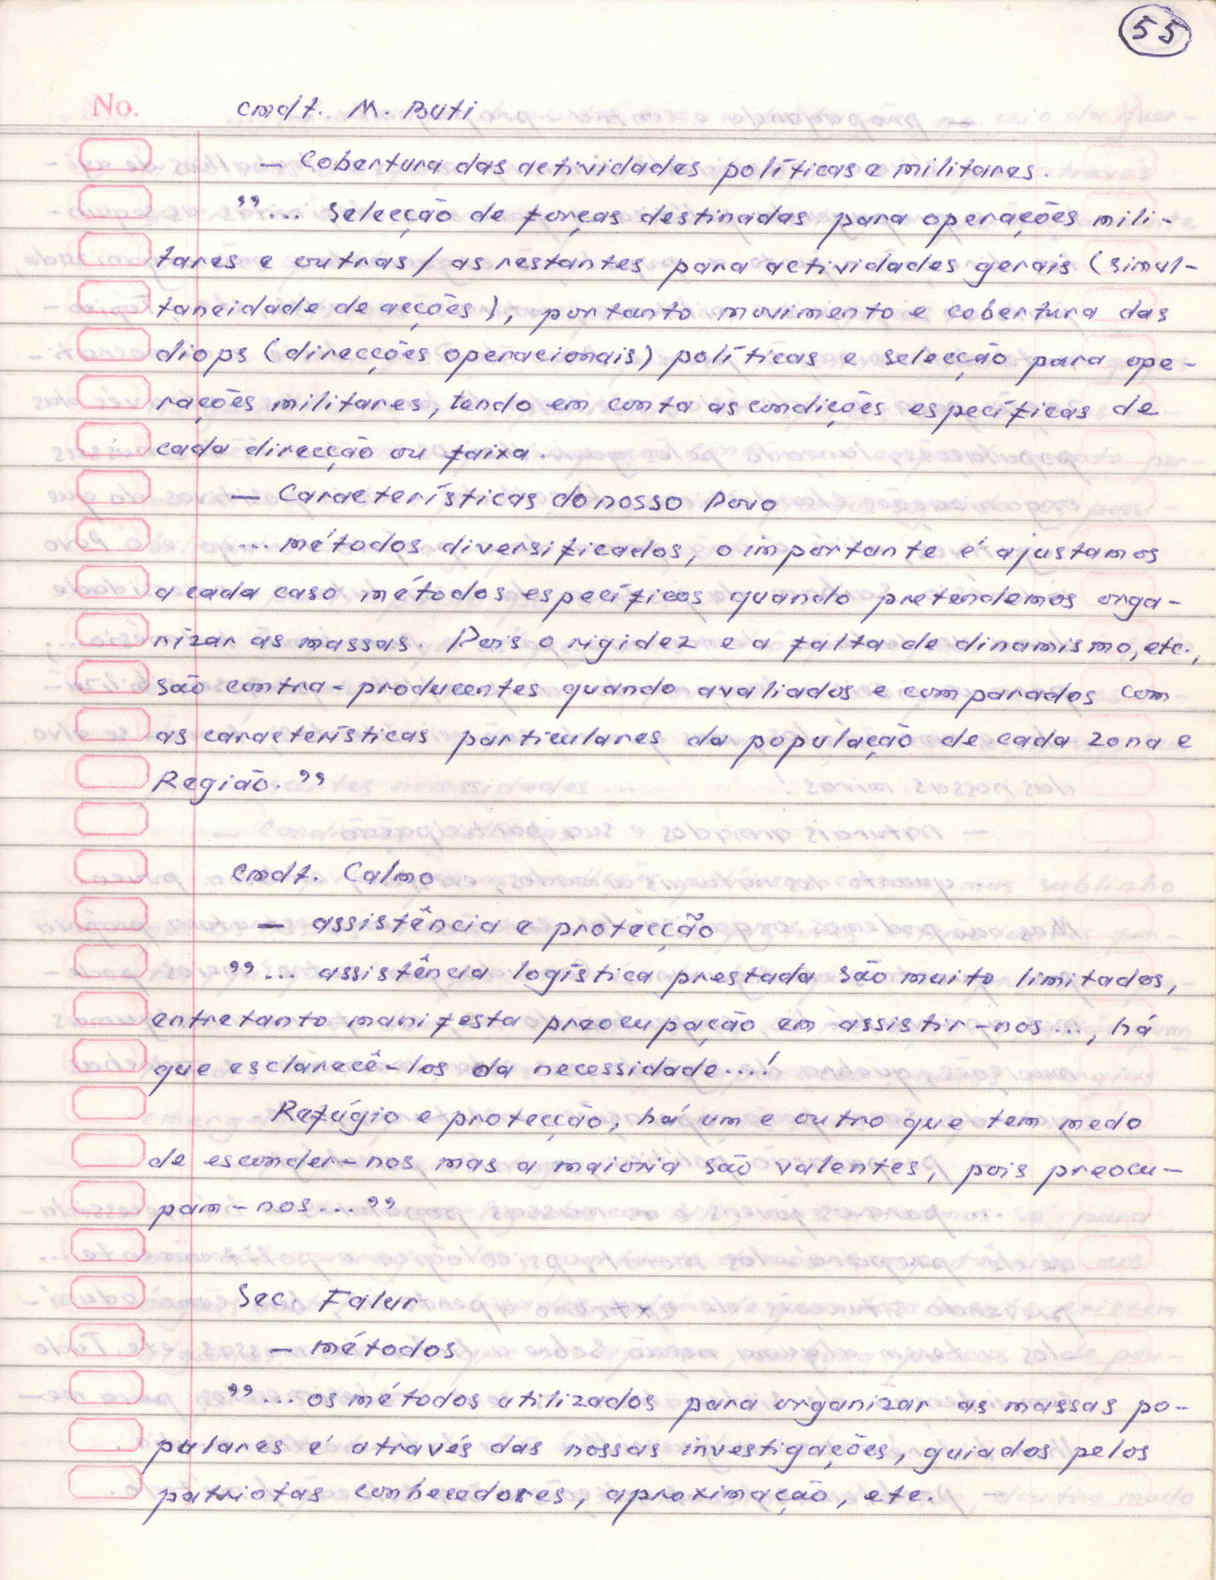 55
No.
cmdt. M. Buti
— Cobertura das actividades políticas e militares.
"... Selecção de forças destinadas para operações mili-
tares e outras / as restantes para actividades gerais (simul-
taneidade de acções), portanto movimento e cobertura das
diops (direcções operacionais) políticas e selecção para ope-
rações militares, tendo em conta as condições específicas de
cada direcção ou faixa.
— Características do nosso Povo
... métodos diversificados, o importante é ajustamos
a cada caso métodos específicos quando pretendemos orga-
nizar as massas. Pois o rigidez e a falta de dinamismo, etc.,
são contra-producentes quando avaliados e comparados com
as características particulares da população de cada zona e
Região."
cmdt. Calmo
— assistência e protecção
"... assistência logística prestada são muito limitados,
entretanto manifesta preocupação em assistir-nos..., há
que esclarecê-los da necessidade...!
Refúgio e protecção, há um e outro que tem medo
de esconder-nos mas a maioria são valentes, pois preocu-
pam-nos..."
Sec. Falur
— métodos
"... os métodos utilizados para organizar as massas po-
pulares é através das nossas investigações, guiados pelos
patriotas conhecedores, aproximação, etc.